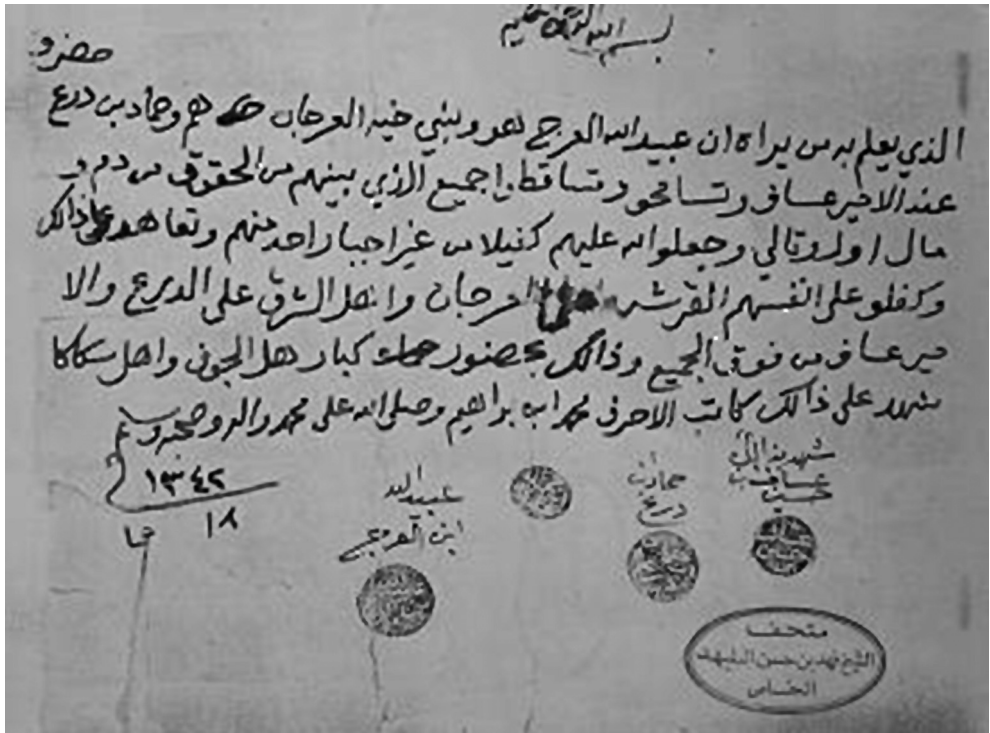 بسم الله الرحمن الرحيم
حضرو
الذي يعلم به من يراه ان عبيد الله العرج هو وبني خيه العرجان هم وحماد بن درع
عند الامير عساف وتسامحو وتساقطو جميع الذي بينهم من الحقوق من دم و
مال اول وتالي وجعلوا الله عليهم كفيلا من غير اجبار احد منهم وتعاهد على ذالك
وكفلو على انفسهم العرجان واهل الشرق على الدرع والا
مير عساف من فوق الجميع وذالك بحضور كبار هل الجوف واهل سكاكا
شهد على ذالك كاتب الاحرف محمد ابراهيم وصلى الله على محمد واله وصحبه وسلم
١٣٤٢
١٨
شهد بذالك
عساف بن
حسين
حماد بن
درع
عبيد الله
ابن العرج
متحف
الشيخ فهد بن حسن
الخاص